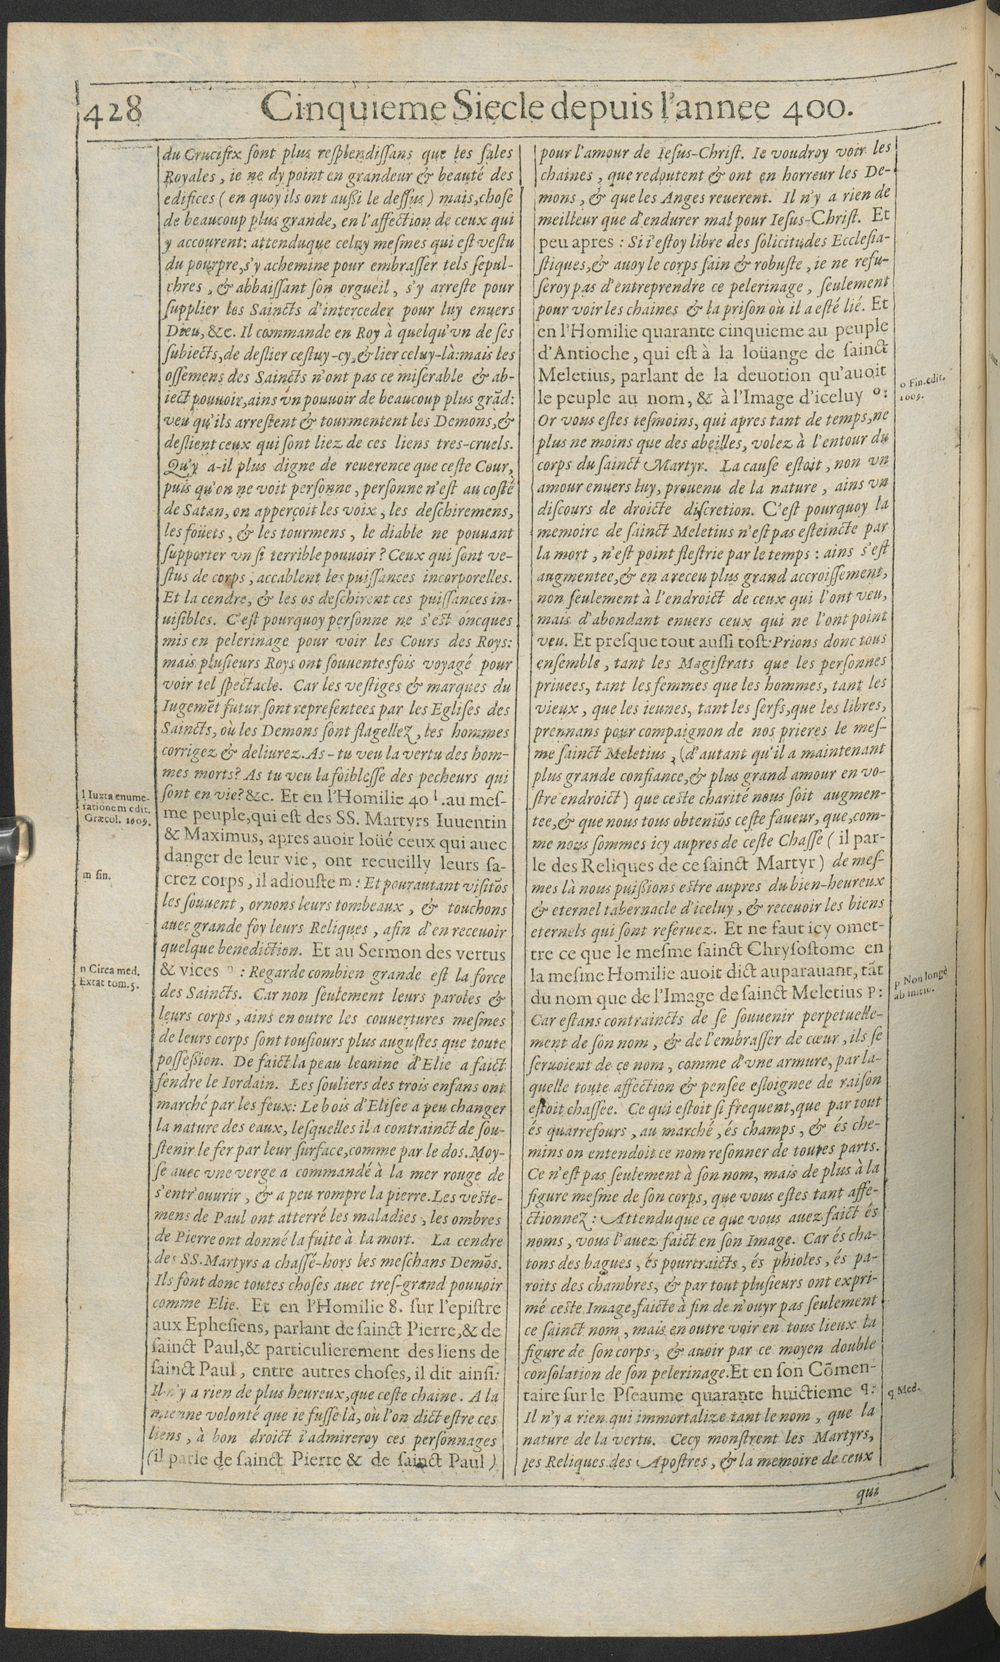 428 Cinquieme Siecle depuis l'annee 400.
du Crucifix sont plus resplendissans que les sales
Royales, ie ne dy point en grandeur & beauté des
edifices (en quoy ils ont aussi le dessus) mais, chose
de beaucoup plus grande, en l'affection de ceux qui
y accourent: attenduque celuy mesmes qui est vestu
du pourpre, s'y achemine pour embrasser tels sepul-
chres, & abbaissant son orgueil, s'y arreste pour
supplier les Saincts d'interceder pour luy enuers
Dieu, &c. Il commande en Roy à quelqu'vn de ses
subiects, de deslier cestuy-cy, & lier celuy-là: mais les
ossemens des Saincts n'ont pas ce miserable & ab-
iect pouuoir, ains vn pouuoir de beaucoup plus grād:
veu qu'ils arrestent & tourmentent les Demons, &
deslient ceux qui sont liez de ces liens tres-cruels.
Qu'y a-il plus digne de reuerence que ceste Cour,
puis qu'on ne voit personne, personne n'est au costé
de Satan, on apperçoit les voix, les deschiremens,
les foüets, & les tourmens, le diable ne pouuant
supporter vn si terrible pouuoir? Ceux qui sont ve-
stus de corps, accablent les puissances incorporelles.
Et la cendre, & les os deschirent ces puissances in-
uisibles. C'est pourquoy personne ne s'est oncques
mis en pelerinage pour voir les Cours des Roys:
mais plusieurs Roys ont souuentesfois voyagé pour
voir tel spectacle. Car les vestiges & marques du
Iugemēt futur sont representees par les Eglises des
Saincts, où les Demons sont flagellez, les hommes
corrigez & deliurez. As-tu veu la vertu des hom-
mes morts? As tu veu la foiblesse des pecheurs qui
sont en vie? &c. Et en l'Homilie 40 l. au mes-
me peuple, qui est des SS. Martyrs Iuuentin
& Maximus, apres auoir loüé ceux qui auec
danger de leur vie, ont recueilly leurs sa-
crez corps, il adiouste m: Et pourautant visitōs
les souuent, ornons leurs tombeaux, & touchons
auec grande foy leurs Reliques, afin d'en receuoir
quelque benediction. Et au Sermon des vertus
& vices n: Regarde combien grande est la force
des Saincts. Car non seulement leurs paroles &
leurs corps, ains en outre les couuertures mesmes
de leurs corps sont tousiours plus augustes que toute
possession. De faict la peau leonine d'Elie a faict
fendre le Iordain. Les souliers des trois enfans ont
marché par les feux: Le bois d'Elisée a peu changer
la nature des eaux, lesquelles il a contrainct de sou-
stenir le fer par leur surface, comme par le dos. Moy-
se auec vne verge a commandé à la mer rouge de
s'entr'ouurir, & a peu rompre la pierre. Les veste-
mens de Paul ont atterré les maladies, les ombres
de Pierre ont donné la fuite à la mort. La cendre
des SS. Martyrs a chassé-hors les meschans Demōs.
Ils font donc toutes choses auec tres-grand pouuoir
comme Elie. Et en l'Homilie 8. sur l'epistre
aux Ephesiens, parlant de sainct Pierre, & de
sainct Paul, & particulierement des liens de
sainct Paul, entre autres choses, il dit ainsi:
Il n'y a rien de plus heureux, que ceste chaine. A la
mienne volonté que ie fusse là, où l'on dict estre ces
liens, à bon droict i'admireroy ces personnages
(il parle de sainct Pierre & de sainct Paul)
l Iuxta enume-
rationem edit.
Græcol. 1609.
m fin.
n Circa med.
Extat tom. 5.
pour l'amour de Iesus-Christ. Ie voudroy voir les
chaines, que redoutent & ont en horreur les De-
mons, & que les Anges reuerent. Il n'y a rien de
meilleur que d'endurer mal pour Iesus-Christ. Et
peu apres: Si i'estoy libre des solicitudes Ecclesia-
stiques, & auoy le corps sain & robuste, ie ne refu-
seroy pas d'entreprendre ce pelerinage, seulement
pour voir les chaines & la prison où il a esté lié. Et
en l'Homilie quarante cinquieme au peuple
d'Antioche, qui est à la loüange de sainct
Meletius, parlant de la deuotion qu'auoit
le peuple au nom, & à l'Image d'iceluy o:
Or vous estes tesmoins, qui apres tant de temps, ne
plus ne moins que des abeilles, volez à l'entour du
corps du sainct Martyr. La cause estoit, non vn
amour enuers luy, prouenu de la nature, ains vn
discours de droicte discretion. C'est pourquoy la
memoire de sainct Meletius n'est pas esteincte par
la mort, n'est point flestrie par le temps: ains s'est
augmentee, & en a receu plus grand accroissement,
non seulement à l'endroict de ceux qui l'ont veu,
mais d'abondant enuers ceux qui ne l'ont point
veu. Et presque tout aussi tost: Prions donc tous
ensemble, tant les Magistrats que les personnes
priuees, tant les femmes que les hommes, tant les
vieux, que les ieunes, tant les serfs, que les libres,
prennans pour compaignon de nos prieres le mes-
me sainct Meletius, (d'autant qu'il a maintenant
plus grande confiance, & plus grand amour en vo-
stre endroict) que ceste charité nous soit augmen-
tee, & que nous tous obteniōs ceste faueur, que, com-
me nous sommes icy aupres de ceste Chasse (il par-
le des Reliques de ce sainct Martyr) de mes-
mes là nous puissions estre aupres du bien-heureux
& eternel tabernacle d'iceluy, & receuoir les biens
eternels qui sont reseruez. Et ne faut icy omet-
tre ce que le mesme sainct Chrysostome en
la mesme Homilie auoit dict auparauant, tāt
du nom que de l'Image de sainct Meletius p:
Car estans contraincts de se souuenir perpetuelle-
ment de son nom, & de l'embrasser de cœur, ils se
seruoient de ce nom, comme d'vne armure, par la-
quelle toute affection & pensee esloignee de raison
estoit chassée. Ce qui estoit si frequent, que par tout
és quarrefours, au marché, és champs, & és che-
mins on entendoit ce nom resonner de toutes parts.
Ce n'est pas seulement à son nom, mais de plus à la
figure mesme de son corps, que vous estes tant affe-
ctionnez: Attenduque ce que vous auez faict és
noms, vous l'auez faict en son Image. Car és cha-
tons des bagues, és pourtraicts, és phioles, és pa-
roits des chambres, & par tout plusieurs ont expri-
mé ceste Image, faicte à fin de n'ouyr pas seulement
ce sainct nom, mais en outre voir en tous lieux la
figure de son corps, & auoir par ce moyen double
consolation de son pelerinage. Et en son Cōmen-
taire sur le Pseaume quarante huictieme q:
Il n'y a rien qui immortalize tant le nom, que la
nature de la vertu. Cecy monstrent les Martyrs,
les Reliques des Apostres, & la memoire de ceux
o Fin. edit.
1609.
p Non longè
ab initio.
q Med.
qui